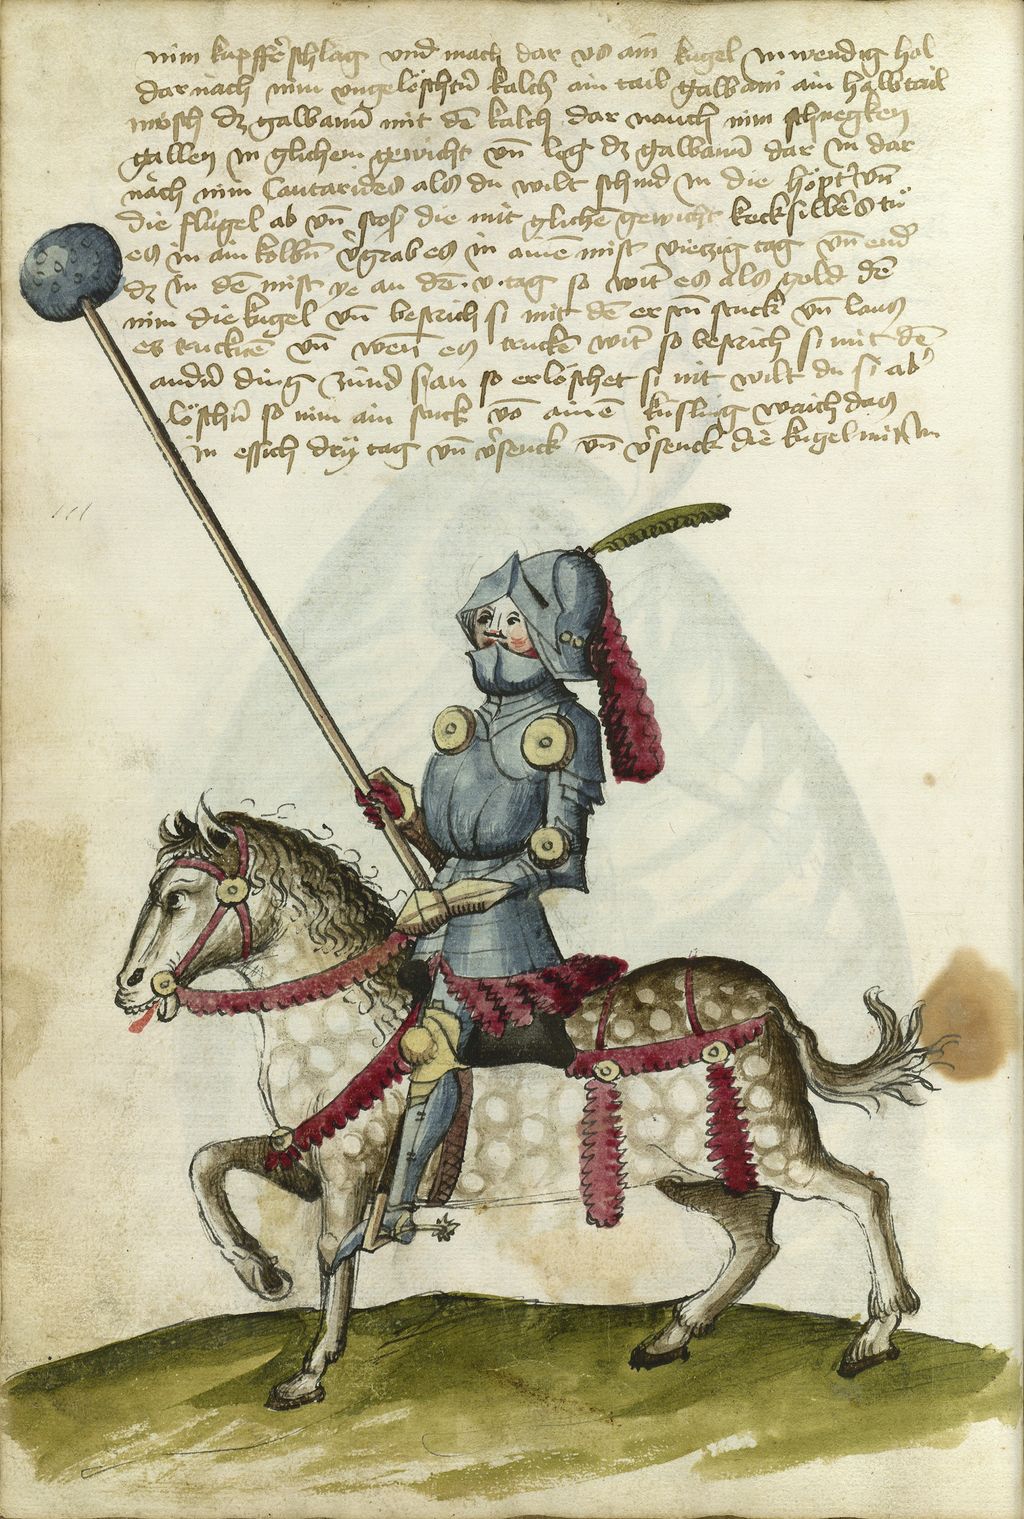 nim kupfferschlag und mach dar vs ain kugel inwendig hol
dar nach nim ungelöschtn kalch ain tail galbani ain halbtail
mösch dz galbanū mit dē kalch dar nauch nim schnegken
gallen in glichem gewicht vn leg dz galbanū dar in dar
nach nim Cantarides als du wilt schnid in die höpter vn
die flügel ab vn stoß die mit glichē gewicht kecksilbers tů
es in ain kolbn vgrab es in ainē mist vierzig tag vn end
dz in dē mist ye an dē · v · tag so wirt es als gold dē
nim die kugel vn bestrich si mit dē ersten stuck vn laus
es trucknē vn wen es truckē wirt so bestrich si mit dē
andn ding zünd si an so erlöschet si nit wilt du si ab
löschn so nim ain stuck vō ainē kisling waich das
in essich dry tag vn vsenck vn vsenck die kugel mit In